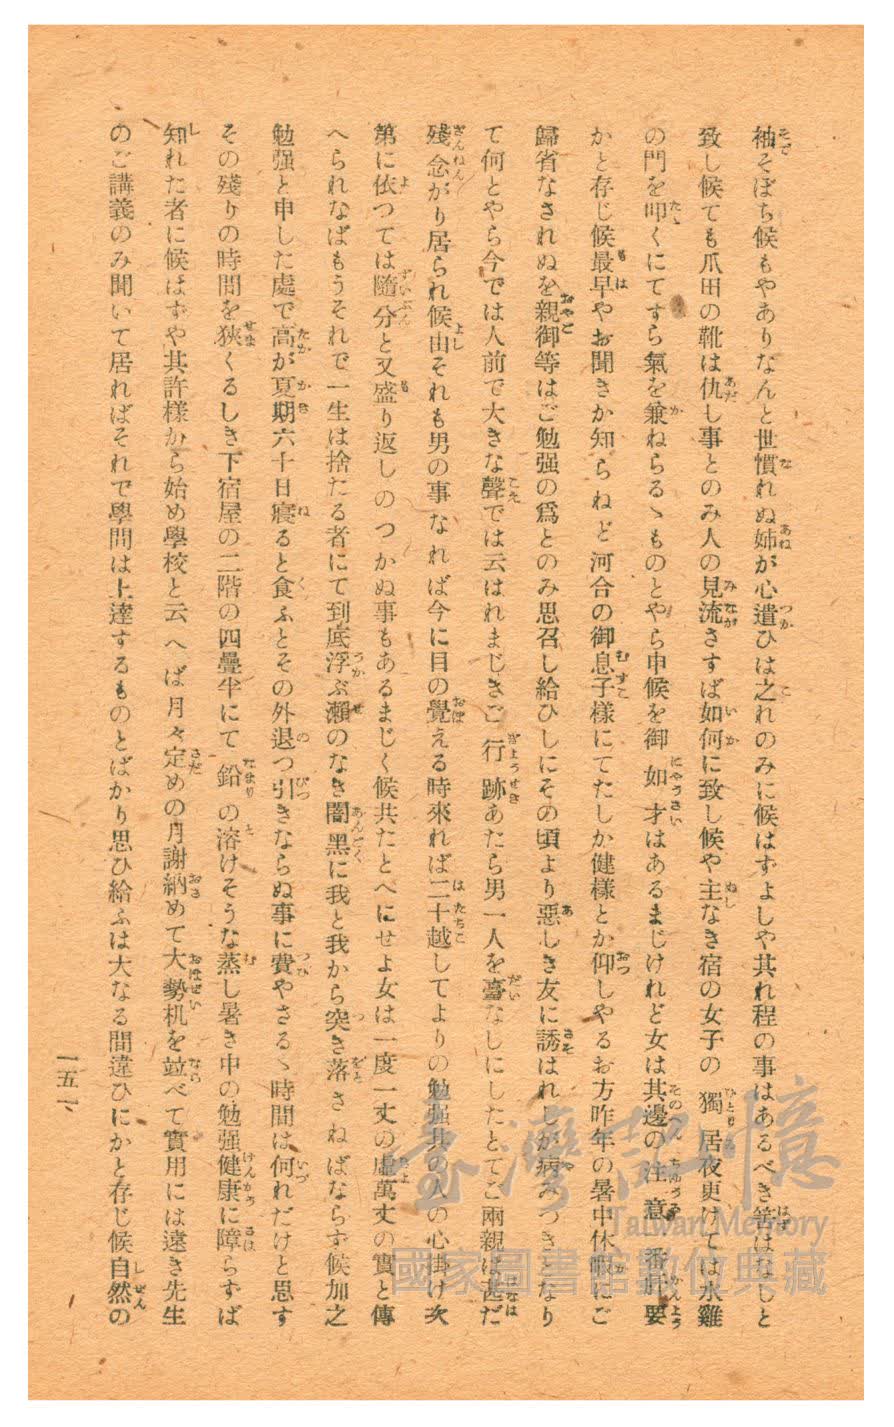 袖そぼち候もやありなんと世慣れぬ姉が心遣ひは之れのみに候はずよしや其れ程の事はあるべき筈はなしと
致し候ても爪田の靴は仇し事とのみ人の見流さすば如何に致し候や主なき宿の女子の獨居夜更けては水雞
の門を叩くにてすら氣を兼ねらるゝものとやら申候を御如才はあるまじけれど女は其邊の注意一番肝要
かと存じ候最早やお聞きか知らねど河合の御息子樣にてたしか健樣とか仰しやるお方昨年の暑中休暇にご
歸省なされぬを親御等はご勉强の爲とのみ思召し給ひしにその頃より惡しき友に誘はれしが病みつきとなり
て何とやら今では人前で大きな聲では云はれまじきご行跡あたら男一人を臺なしにしたとてご兩親は甚だ
殘念がり居られ候由それも男の事なれば今に目の覺える時來れば二十越してよりの勉强其の人の心掛け次
第に依つては隨分と又盛り返しのつかぬ事もあるまじく候共たとへにせよ女は一度一丈の虛萬丈の實と傳
へられなばもうそれで一生は捨たる者にて到底浮ぶ瀨のなき闇黑に我と我から突き落さねばならず候加之
勉强と申した處で高が夏期六十日寢ると食ふとその外退つ引きならぬ事に費やさるゝ時間は何れだけと思す
その殘りの時間を狹くるしき下宿屋の二階の四疊半にて鉛の溶けそうな蒸し暑き中の勉强健康に障らずば
知れた者に候はずや其許樣から始め學校と云へば月々定めの月謝納めて大勢机を並べて實用には遠き先生
のご講義のみ聞いて居ればそれで學問は上達するものとばかり思ひ給ふは大なる間違ひにかと存じ候自然の
一五一
臺灣記憶
Taiwan Memory
國家圖書館數位典藏